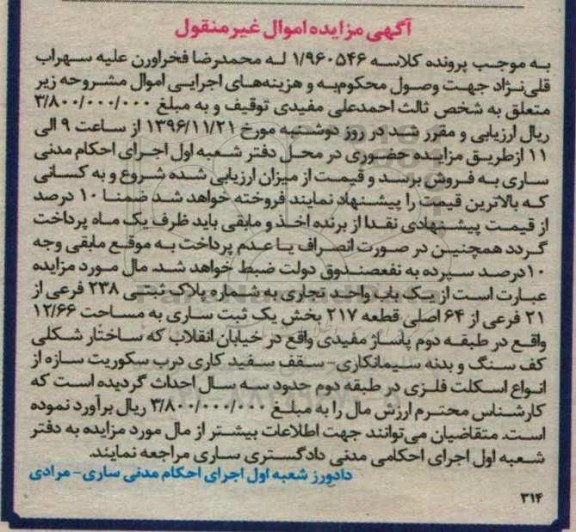 آگهی مزایده اموال غیر منقول
به موجب پرونده کلاسه ۱/۹۶۰۵۴۶ له محمدرضا فخراورن علیه سهراب
قلی‌نژاد جهت وصول محکوم‌به و هزینه‌های اجرایی اموال مشروحه زیر
متعلق به شخص ثالث احمدعلی مفیدی توقیف و به مبلغ ۳/۸۰۰/۰۰۰/۰۰۰
ریال ارزیابی و مقرر شد در روز دوشنبه مورخ ۱۳۹۶/۱۱/۲۱ از ساعت ۹ الی
۱۱ ازطریق مزایده حضوری در محل دفتر شعبه اول اجرای احکام مدنی
ساری به فروش برسد و قیمت از میزان ارزیابی شده شروع و به کسانی
که بالاترین قیمت را پیشنهاد نمایند فروخته خواهد شد ضمنا ۱۰ درصد
از قیمت پیشنهادی نقدا از برنده اخذ و مابقی باید ظرف یک ماه پرداخت
گردد همچنین در صورت انصراف یا عدم پرداخت به موقع مابقی وجه
۱۰درصد سپرده به نفعصندوق دولت ضبط خواهد شد. مال مورد مزایده
عبارت است از یک باب واحد تجاری به شماره پلاک ثبتی ۲۳۸ فرعی از
۲۱ فرعی از ۶۴ اصلی قطعه ۲۱۷ بخش یک ثبت ساری به مساحت ۱۲/۶۶
واقع در طبقه دوم پاساژ مفیدی واقع در خیابان انقلاب که ساختار شکلی
کف سنگ و بدنه سیمانکاری- سقف سفید کاری درب سکوریت سازه از
انواع اسکلت فلزی در طبقه دوم حدود سه سال احداث گردیده است که
کارشناس محترم ارزش مال را به مبلغ ۳/۸۰۰/۰۰۰/۰۰۰ ریال برآورد نموده
است. متقاضیان می‌توانند جهت اطلاعات بیشتر از مال مورد مزایده به دفتر
شعبه اول اجرای احکامی مدنی دادگستری ساری مراجعه نمایند.
دادورز شعبه اول اجرای احکام مدنی ساری- مرادی
۳۱۴